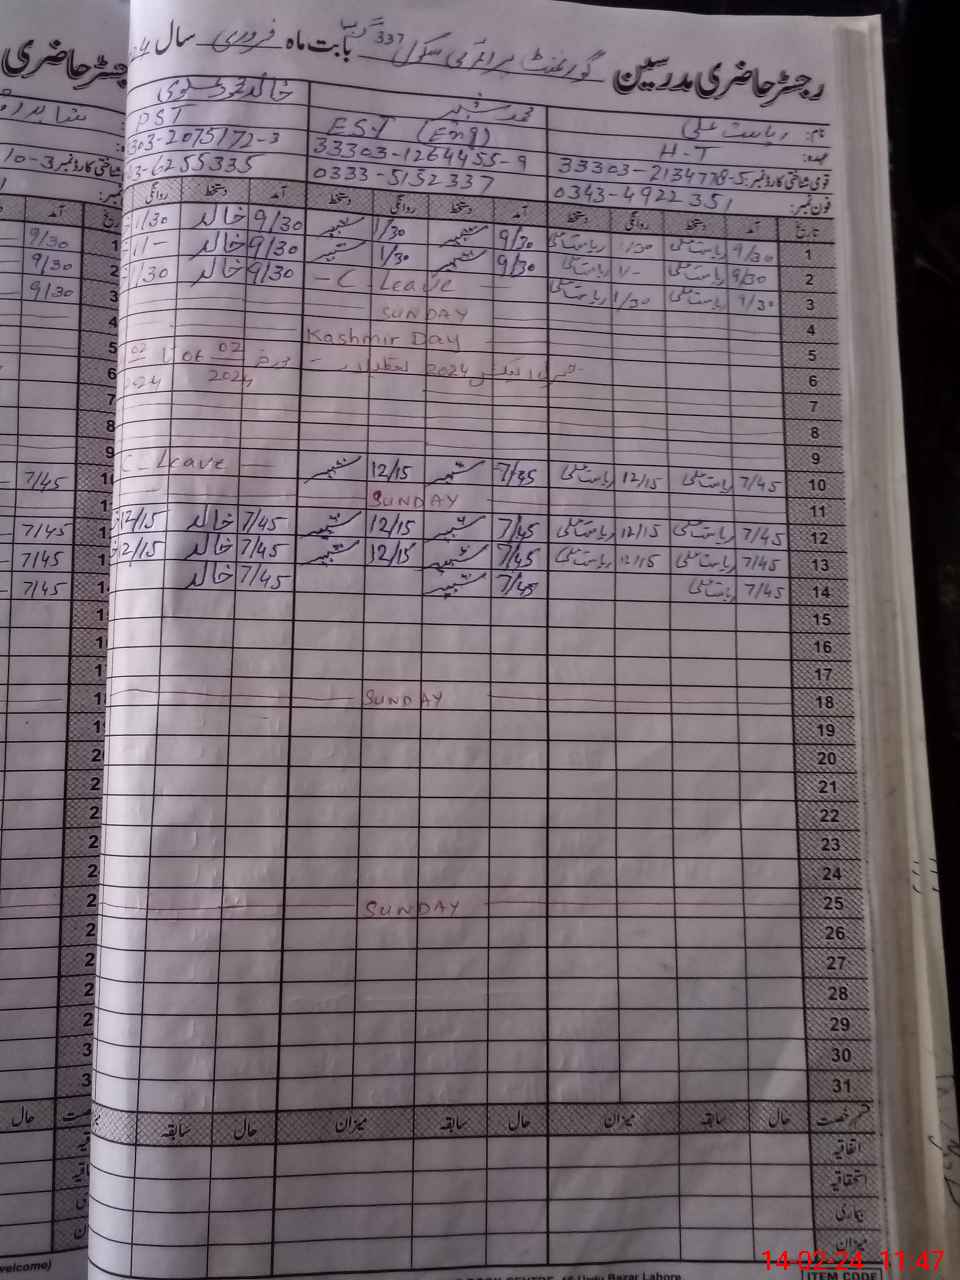 رجسٹر حاضری مدرسین گورنمنٹ پرائمری سکول 337 گ ب بابت ماہ فروری سال
نام: ریاست علی محمد شبیر خالد محمود
عہدہ: H-T EST (Eng) PST
قومی شناختی کارڈ نمبر: 33303-2134778-5 33303-1264455-9 303-2075172-3
فون نمبر: 0343-4922351 0333-5132337 3-6255335
تاریخ آمد دستخط روانگی دستخط آمد دستخط روانگی دستخط آمد دستخط روانگی
1 9/30 ریاست علی 1/30 ریاست علی 9/30 شبیر 1/30 شبیر 9/30 خالد 1/30
2 9/30 ریاست علی 1/- ریاست علی 9/30 شبیر 1/30 شبیر 9/30 خالد 11-
3 9/30 ریاست علی 1/30 ریاست علی - C. Leave 9/30 خالد 1/30
4 SUNDAY
5 Kashmir Day
6 2024 تعطیلات - مورخہ 02 2024 تا 06 02 2024
7
8
9
10 7/45 ریاست علی 12/15 ریاست علی 7/45 شبیر 12/15 شبیر C - Leave
11 SUNDAY
12 7/45 ریاست علی 12/15 ریاست علی 7/45 شبیر 12/15 شبیر 7/45 خالد 12/15
13 7/45 ریاست علی 12/15 ریاست علی 7/45 شبیر 12/15 شبیر 7/45 خالد 12/15
14 7/45 ریاست علی 7/45 شبیر 7/45 خالد
15
16
17
18 SUNDAY
19
20
21
22
23
24
25 SUNDAY
26
27
28
29
30
31
قسم رخصت حال سابقہ میزان حال سابقہ میزان حال سابقہ
اتفاقیہ
استحقاقیہ
بیماری
میزان
Urdu Bazar Lahore
ITEM CODE
14-02-24 11:47
جسٹر حاضری
شناختی کارڈ نمبر 3-10
آمد
9/30
9/30
9/30
7/45
7/45
7/45
7/45
حال
welcome)